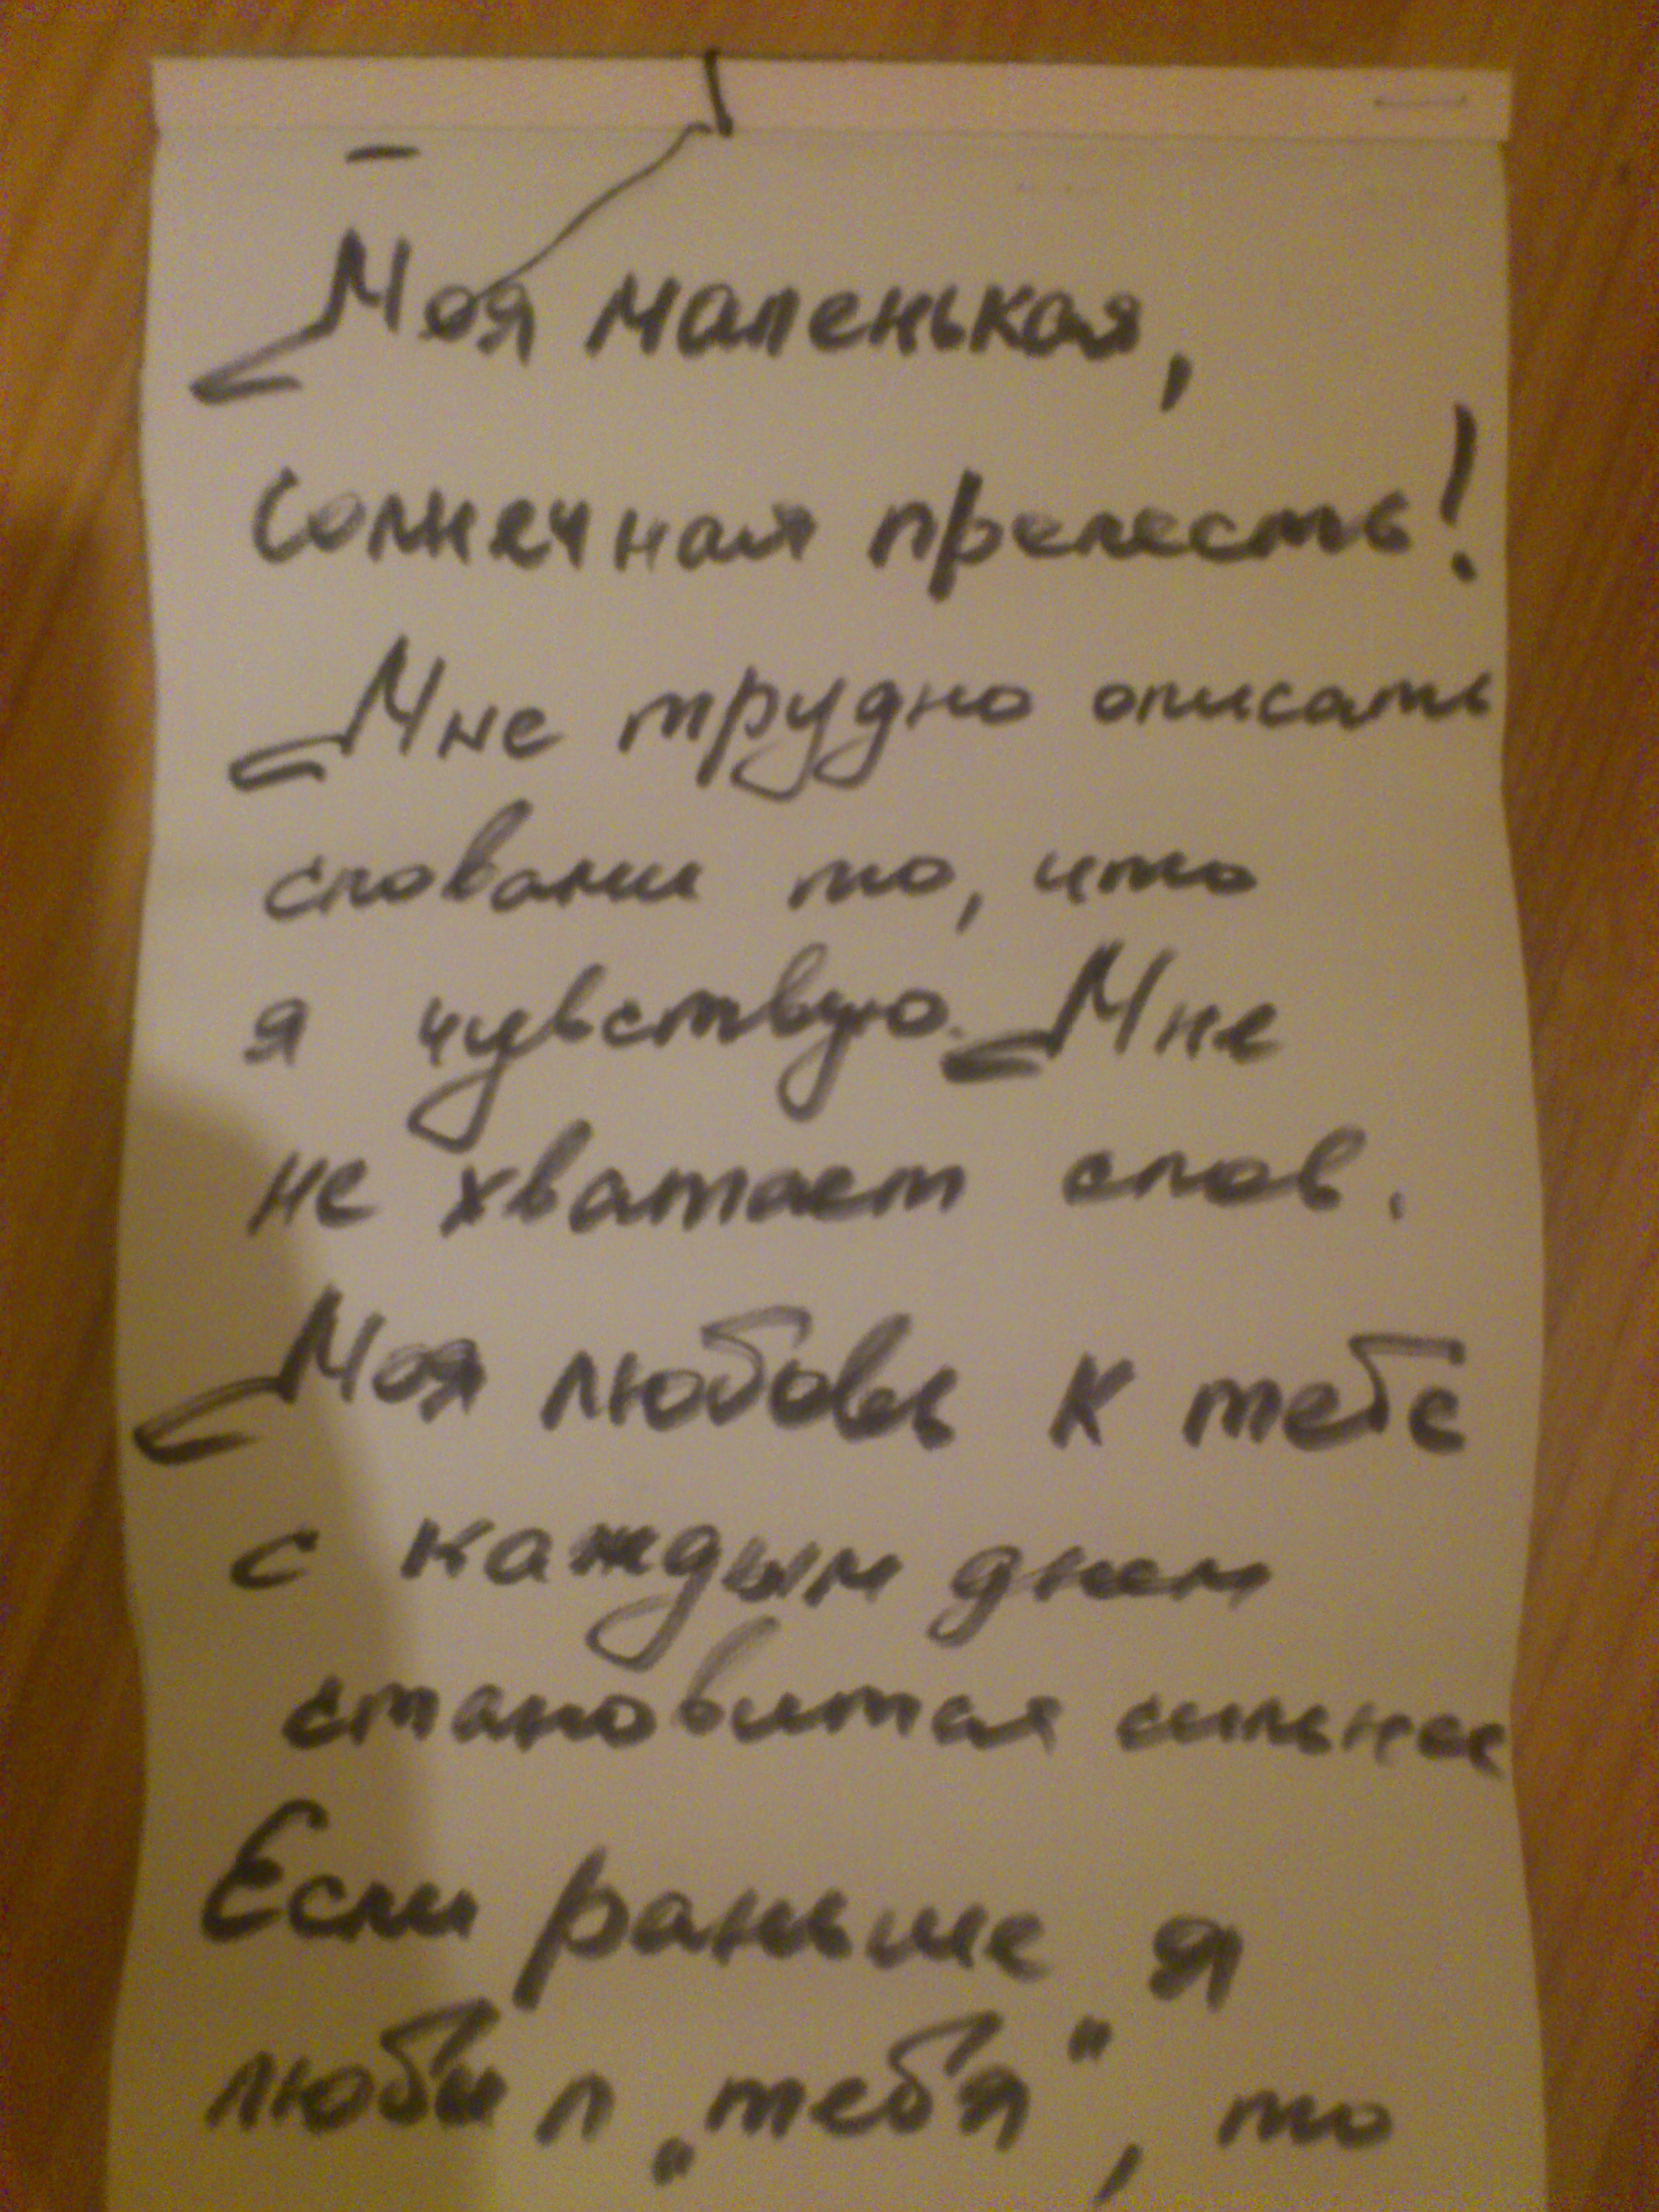 Моя маленькая,
Солнечная прелесть!
Мне трудно описать
словами то, что
я чувствую. Мне
не хватает слов.
Моя любовь к тебе
с каждым днем
становится сильнее
Если раньше я
любил „тебя“, то